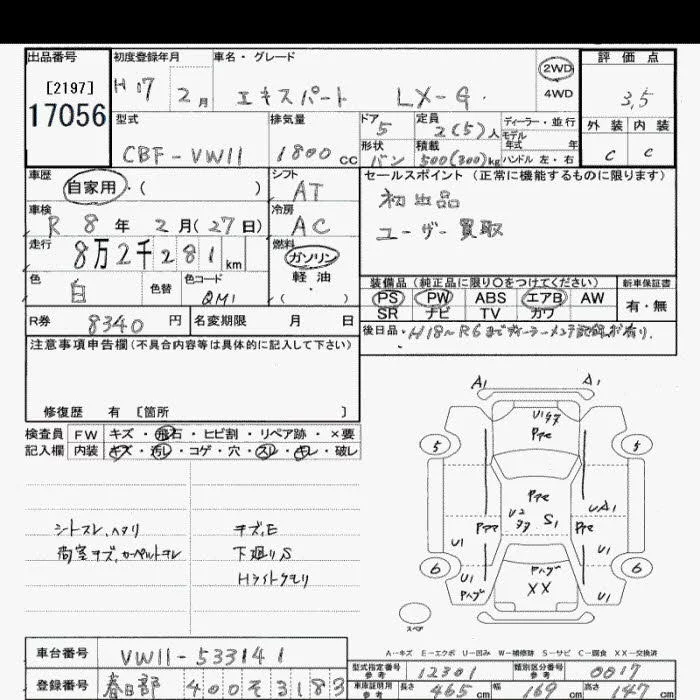 出品番号
[2197]
17056
初度登録年月
H 17 2月
車名・グレード
エキスパート LX-G
2WD
4WD
評価点
3.5
外装 内装
C C
型式
CBF-VW11
排気量
1800cc
ドア
5
定員
2(5)人
ディーラー・並行
モデル
年式 年
形状
バン
積載
500(300)kg
ハンドル 左・右
車歴
自家用・( )
シフト
AT
セールスポイント(正常に機能するものに限ります)
初出品
ユーザー買取
車検
R 8年 2月(27日)
冷房
AC
走行
8万2千281km
燃料
ガソリン
軽油
( )
色
白
色替
色コード
QM1
装備品(純正品に限り〇をつけてください)
新車保証書
PS PW ABS エアB AW
SR ナビ TV カワ
有・無
R券
8340円
名変期限 月 日
後日品・H18~R6までディーラーメンテ記録簿有り.
注意事項申告欄(不具合内容等は具体的に記入して下さい)
修復歴 有 [箇所 ]
検査員
記入欄
FW キズ・飛石・ヒビ割・リペア跡・×要
内装 キズ・汚し・コゲ・穴・スレ・キレ・破レ
シートスレ、ヘタリ
荷室キズ、カーペットキレ
キズ,E
下廻りS
Hライトクモリ
A1 A1
U1キズ
Pアセ
5 5
Pアセ
U2
キズ
S1
Pアセ Pアセ
UA1
U1 U1
6 6
Pハゲ
XX
U1
Pハゲ
U1
スペア
A-キズ E-エクボ U-凹み W-補修跡 S-サビ C-腐食 XX-交換済
車台番号
VW11-533141
登録番号
春日部 400 そ 3183
型式指定番号
参考
12301
類別区分番号
参考
0017
車庫証明用
参考
長さ 465cm 幅 169cm 高さ 147cm